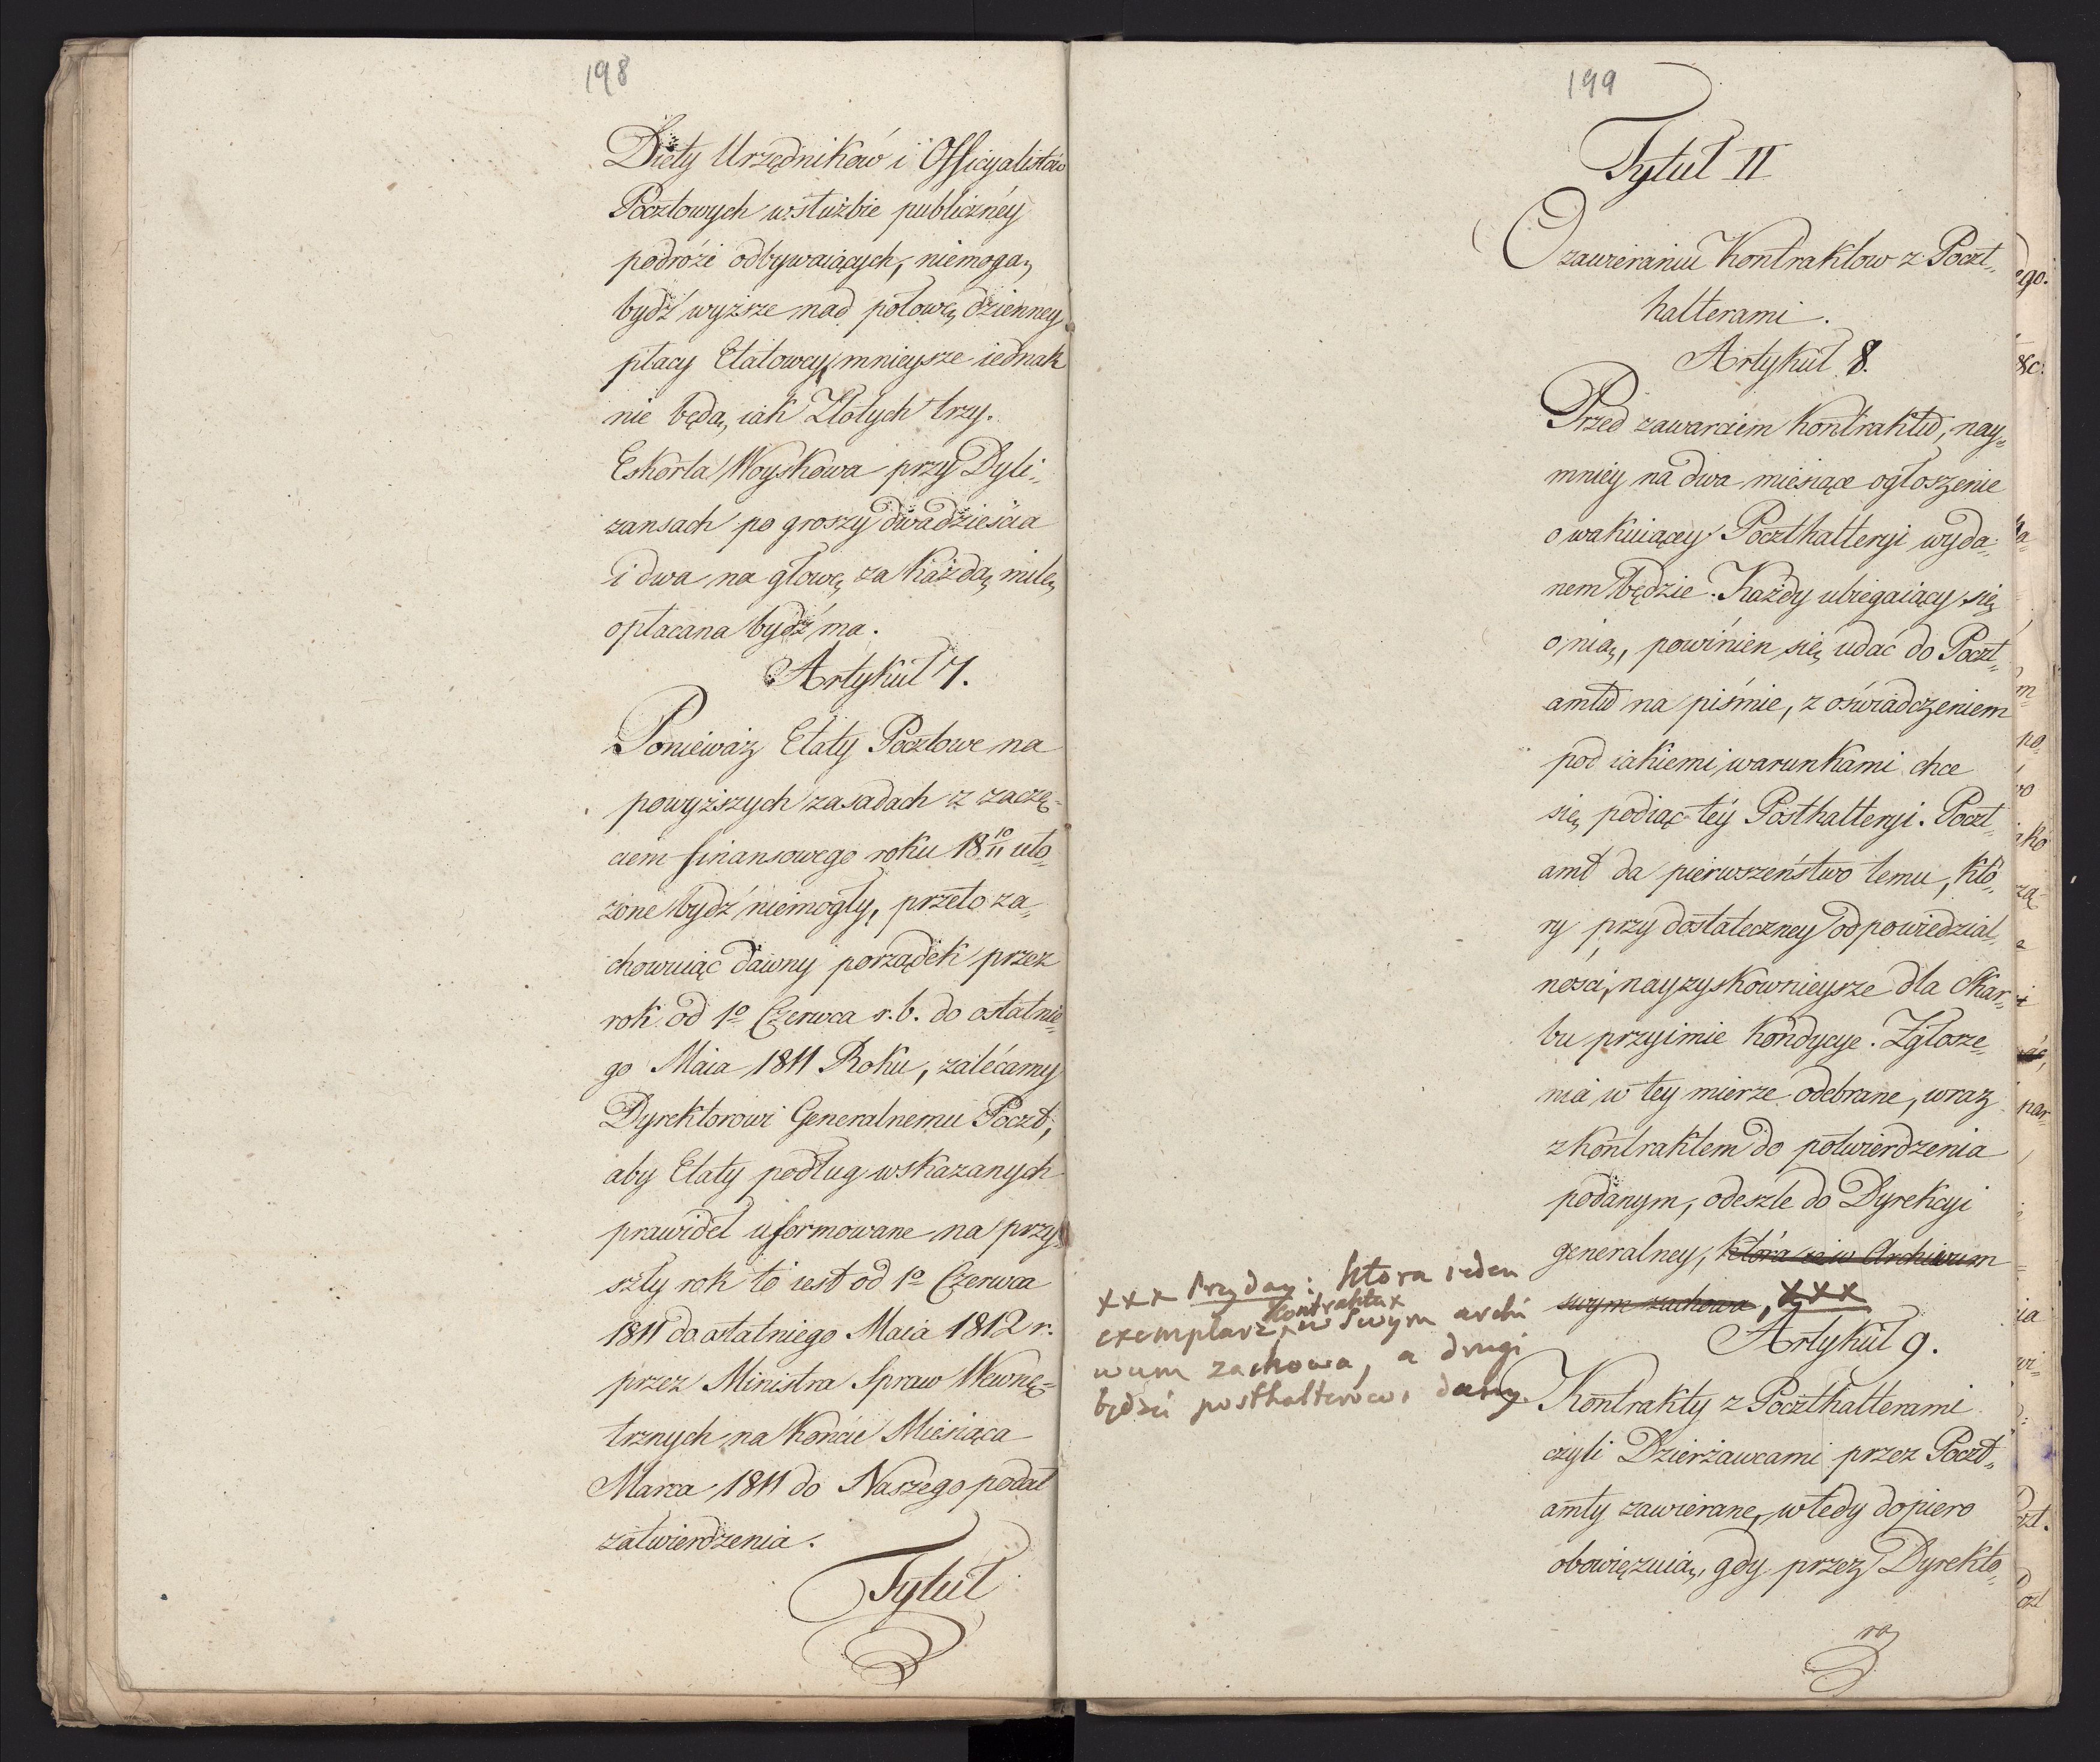 198
Diety Urzędników i Officyalistów
Pocztowych w służbie publiczney
podróże odbywaiących, niemogą
bydź wyższe nad połowę dzienney
płacy Etatowey, mnieysze iednak
nie będą, iak Złotych trzy.
Eskorta Woyskowa przy Dyli„
zansach po groszy dwadzieścia
i dwa na głowę za każdą milę
opłacana bydź ma.
Artykuł 7.
Ponieważ Etaty Pocztowe na
powyższych zasadach z zaczę„
ciem finansowego roku 18 10/11 uło„
żone bydź niemogły, przeto za„
chowuiąc dawny porządek przez
rok od 1o Czerwca r. b. do ostatnie„
go Maia 1811 Roku, zalécamy
Dyrektorowi Generalnemu Poczt,
aby Etaty podług wskazanych
prawideł uformowane na przy„
szły rok to iest od 1o Czerwca
1811 do ostatniego Maia 1812 r.
przez Ministra Spraw Wewnę„
trznych na końcu Miesiąca
Marca 1811 do Naszego podał
zatwierdzenia.
Tytuł
199
Tytuł II
O zawieraniu Kontraktow z Poczt„
halterami.
Artykuł 8.
Przed zawarciem kontraktu, nay„
mniey na dwa miesiące ogłoszenie
o wakuiącey Poczthalteryi wyda„
nem będzie. Każdy ubiegaiący się
o nią, powinien się udać do Poczt„
amtu na piśmie, z oświadczeniem
pod iakiemi warunkami chce
się podiąć téy Posthalteryi. Poczt„
amt da pierwszeństwo temu, któ„
ry przy dostateczney odpowiedzial„
ności, nayzyskownieysze dla Skar„
bu przyimie kondycye. Zgłosze„
nia w tey mierze odebrane, wraz
z kontraktem do potwierdzenia
podanym, odeszle do Dyrekcyi
generalney, która ie w Archiwum
swym zachowa, xxx
xxx Przyday: ktora ieden
exemplarz kontraktu x w swym archi
wum zachowa, a drugi
będzie posthalterowi dany.
Artykuł 9.
Kontrakty z Poczthalterami
czyli Dzierżawcami przez Poczt„
amty zawierane, wtedy dopiero
obowięzuią, gdy przez Dyrekto„
ra